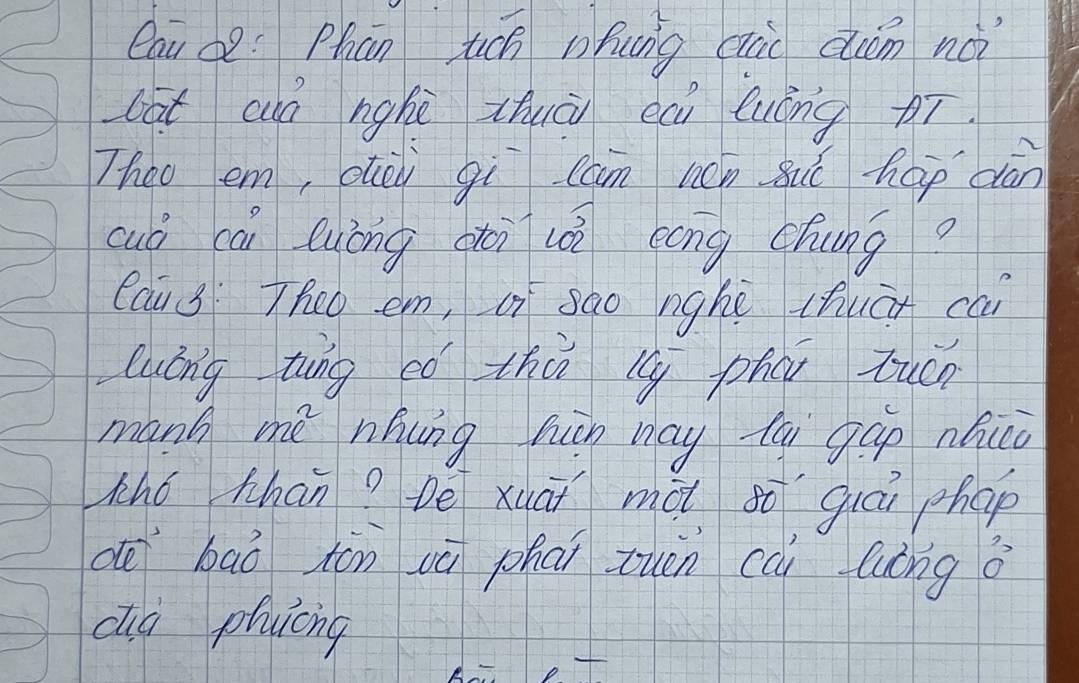 Câu 2: Phân tích những đặc điểm nổi
bật của nghệ thuật cải lương ĐT.
Theo em, điều gì làm nên sức hấp dẫn
của cải lương đối với công chúng?
Câu 3: Theo em, vì sao nghệ thuật cải
lương từng có thời kỳ phát triển
mạnh mẽ nhưng hiện nay lại gặp nhiều
khó khăn? Đề xuất một số giải pháp
để bảo tồn và phát triển cải lương ở
địa phương